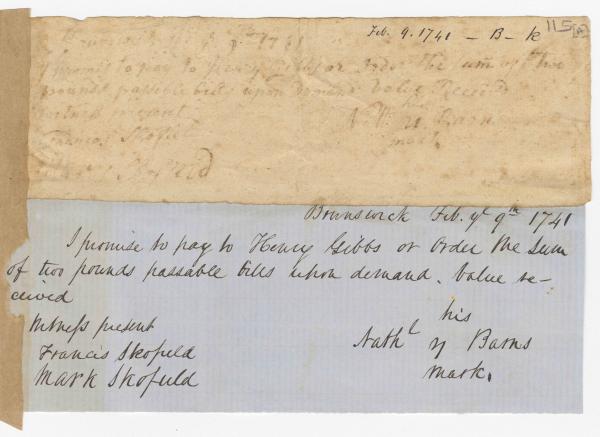 Feb. 9. 1741 – B – k
115[A]
Brunswick Feb. ye 9th 1741
I promis to pay to Henry Gibbs or order the sum of two
pounds passable bills upon demand Value Received
witness present
his
Francis Skofeld
Nathl. y Barns
mark
Mark Skofeld
Brunswick Feb. ye 9th 1741
I promise to pay to Henry Gibbs or Order the Sum
of two pounds passable bills upon demand. Value re-
ceived
Witness present
his
Francis Skofield
Nathl y Barns
Mark Skofield
mark.